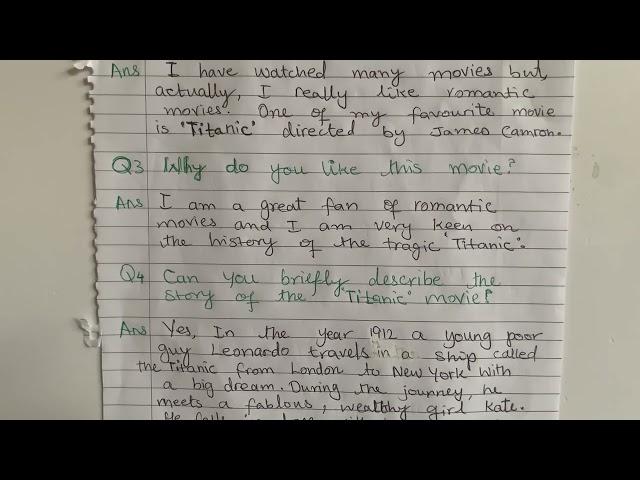 Ans I have watched many movies but,
actually, I really like romantic
movies. One of my favourite movie
is 'Titanic' directed by James Camron.
Q3 Why do you like this movie?
Ans I am a great fan of romantic
movies and I am very keen on
the history of the tragic 'Titanic'.
Q4 Can you briefly describe the
story of the 'Titanic' movie?
Ans Yes, In the year 1912 a young poor
guy Leonardo travels in a ship called
the Titanic from London to New York with
a big dream. During the journey, he
meets a fablous, wealthy girl Kate.
He falls in love